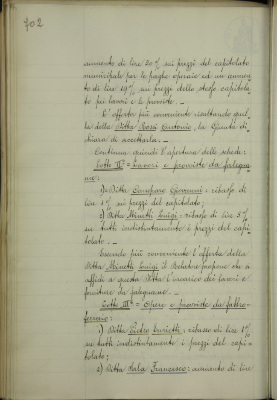 702
aumento di lire 20% sui prezzi del capitolato
municipale per le paghe operaie ed un aumen-
to di lire 19% sui prezzi dello stesso capitola-
to pei lavori e le provviste. _
E' offerta più conveniente risultando quel-
la della Ditta Rossi Antonio, la Giunta di-
chiara di accettarla. _
Continua quindi l'apertura delle schede:
Lotto II° = Lavori e provviste da falegna-
me:
1) Ditta Giovanni: ribasso di
lire 1% sui prezzi del capitolato;
2) Ditta Minetti Luigi: ribasso di lire 5%
su tutti indistintamente i prezzi del capi-
tolato. _
Essendo più conveniente l'offerta della
Ditta Minetti Luigi il Relatore propone che si
affidi a questa Ditta l'incarico dei lavori e
forniture da falegname. _
Lotto III° = Opere e provviste da fabbro-
ferraio:
1) Ditta Pietro: ribasso di lire 1%
su tutti indistintamente i prezzi del capi-
tolato;
2) Ditta Sala Francesco: aumento di lire